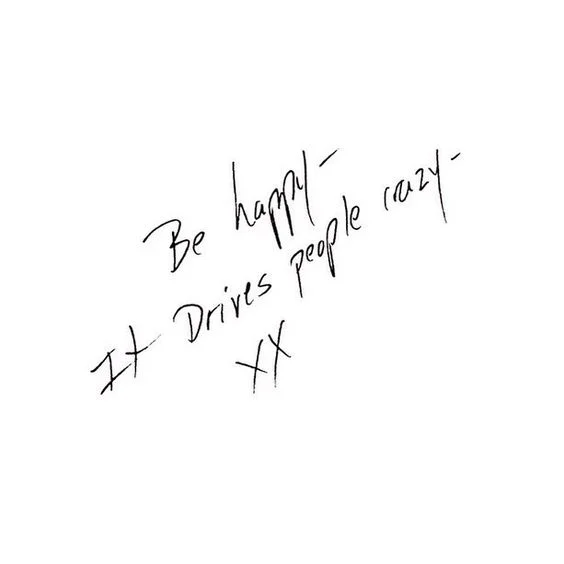 Be happy-
It Drives people crazy-
XX